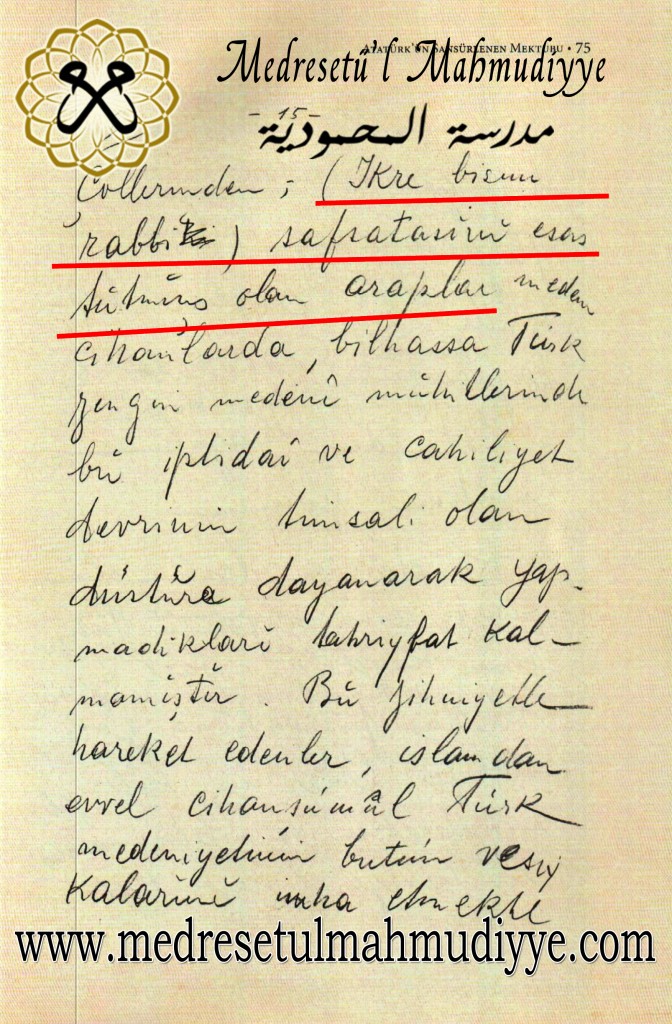 ATATÜRK'ÜN SANSÜRLENEN MEKTUBU • 75
Medresetü'l Mahmudiyye
-15-
مدرسة المحمودية
Çöllerinden ; (İKre bismi
rabbi ) safsatasını esas
tütmüş olan araplar meden
cihanlarda, bilhassa Türk
zengin medenî mühitlerinde
bü iptidaî ve cahiliyet
devrinin timsali olan
düstüra dayanarak yap-
madıkları tahriyfat kal-
mamıştır. Bü zihniyetle
hareket edenler, islamdan
evvel cihanşümûl Türk
medeniyetinin bütün vesiy
Kalarını imha etmekte
www.medresetulmahmudiyye.com